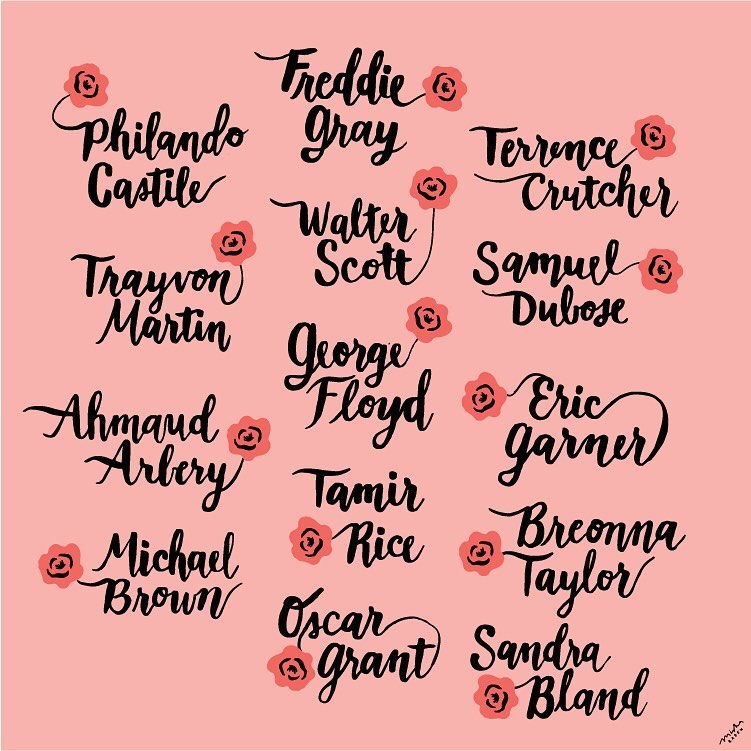 Philando
Castile
Trayvon
Martin
Ahmaud
Arbery
Michael
Brown
Freddie
Gray
Walter
Scott
George
Floyd
Tamir
Rice
Oscar
Grant
Terrence
Crutcher
Samuel
Dubose
Eric
Garner
Breonna
Taylor
Sandra
Bland